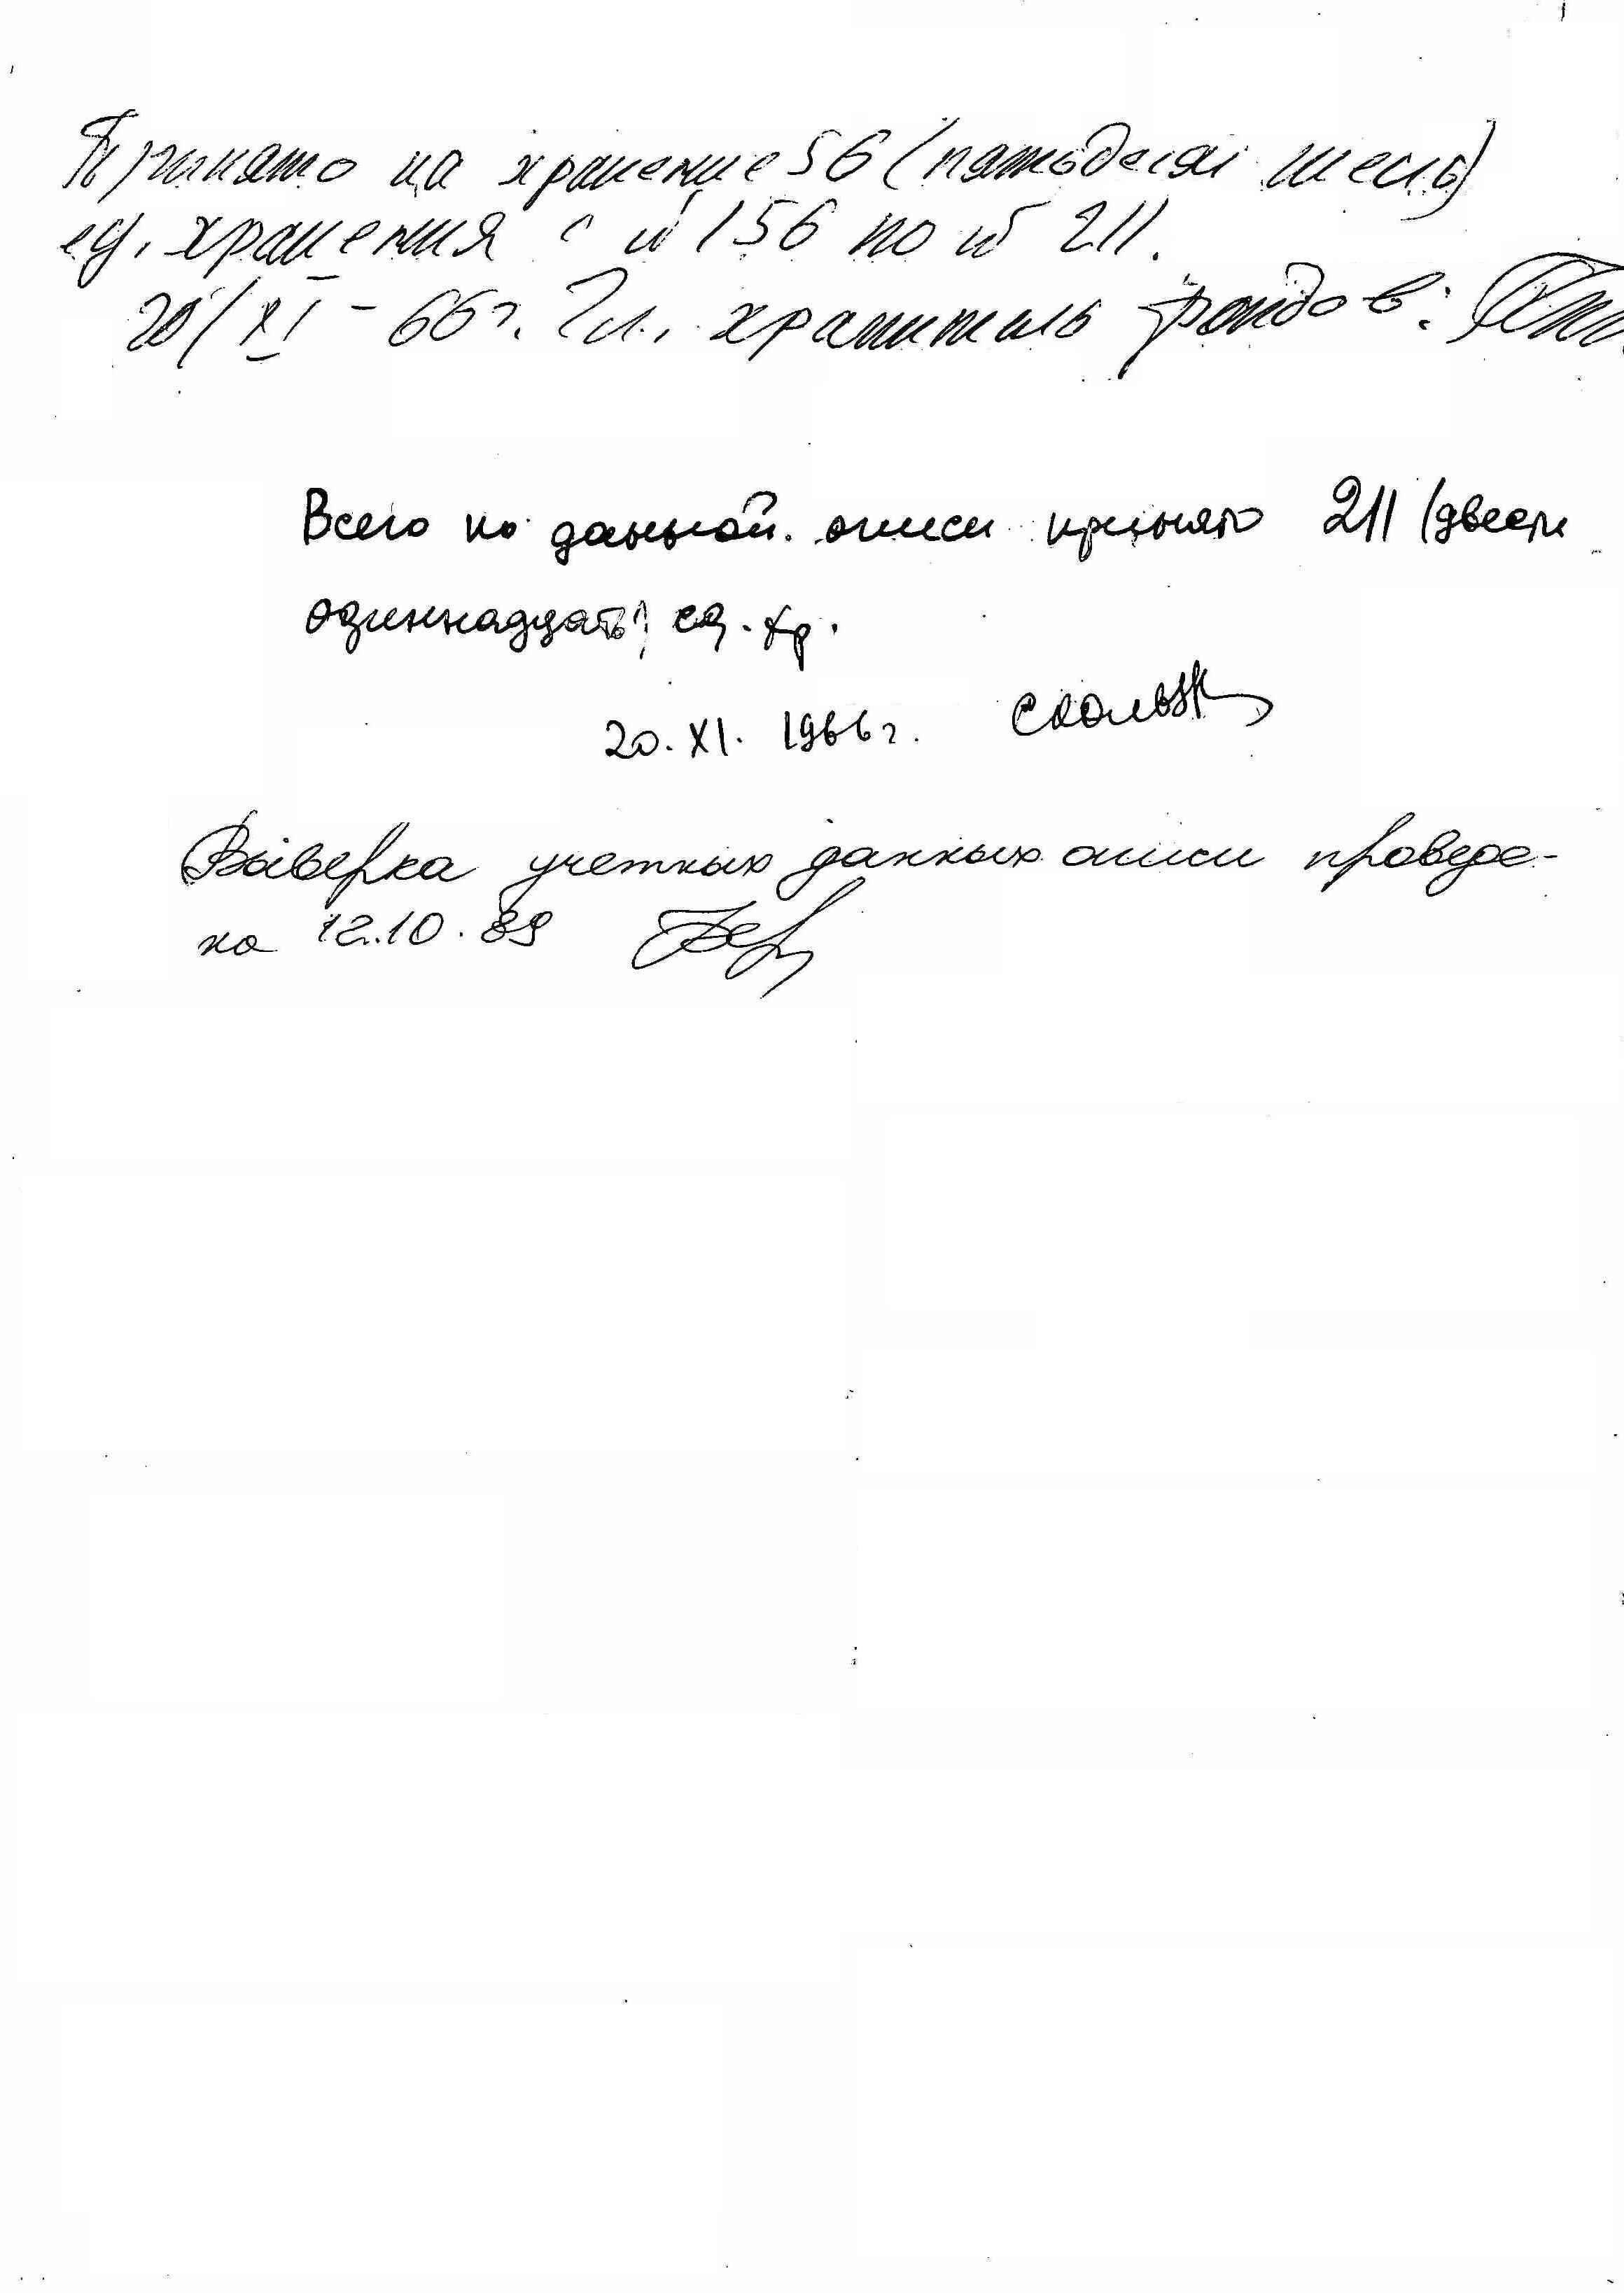 Принято на хранение 56 (пятьдесят шесть)
ед. хранения с № 156 по № 211.
20/XI - 66 г. Гл. хранитель фондов:
Всего по данной описи принято 211 (двести
одиннадцать) ед. хр.
20. XI. 1966 г.
Выверка учетных данных описи проведе-
на 12.10.89